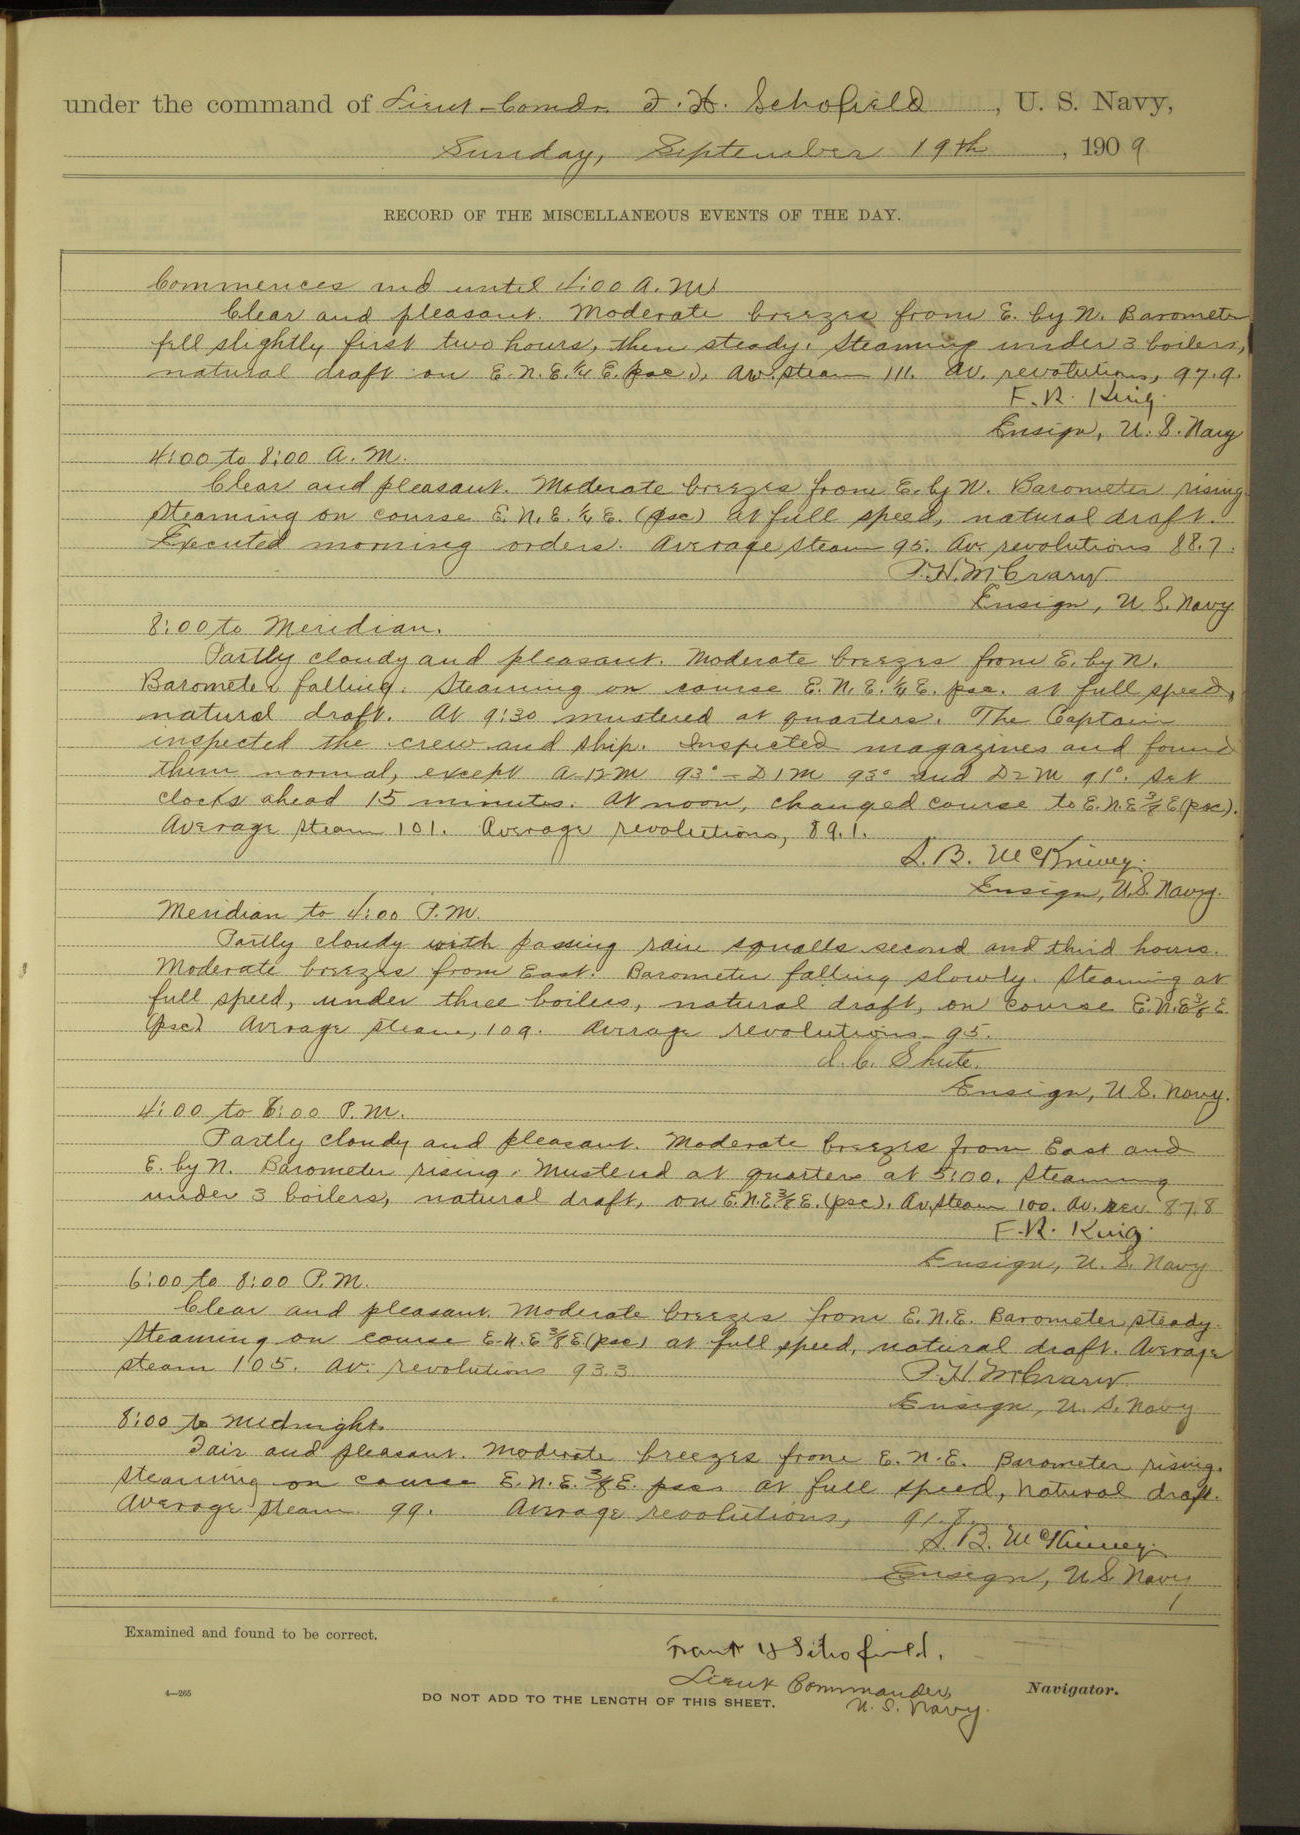 under the command of Lieut-Comdr. F. H. Schofield, U. S. Navy,
Sunday, September 19th, 1909
RECORD OF THE MISCELLANEOUS EVENTS OF THE DAY.
Commences and until 4:00 A. M.
Clear and pleasant. Moderate breezes from E. by N. Barometer
fell slightly first two hours, then steady. Steaming under 3 boilers,
natural draft on E. N. E. 1/4 E. (psc), Av. steam 111. Av. revolutions, 97.9.
F. R. King.
Ensign, U. S. Navy
4:00 to 8:00 A. M.
Clear and pleasant. Moderate breezes from E. by N. Barometer rising.
Steaming on course E. N. E. 1/4 E. (psc) at full speed, natural draft.
Executed morning orders. Average steam 95. Av. revolutions 88.7.
P. H. McCrary
Ensign, U. S. Navy
8:00 to Meridian.
Partly cloudy and pleasant. Moderate breezes from E. by N.
Barometer falling. Steaming on course E. N. E. 1/4 E. psc. at full speed,
natural draft. At 9:30 mustered at quarters. The Captain
inspected the crew and ship. Inspected magazines and found
them normal, except A-12M 93° - D1M 93° and D2M 91°. Set
clocks ahead 15 minutes. At noon, changed course to E. N. E 3/8 E (psc).
Average steam 101. Average revolutions, 89.1.
S. B. McKinney.
Ensign, U. S. Navy.
Meridian to 4:00 P. M.
Partly cloudy with passing rain squalls second and third hours.
Moderate breezes from East. Barometer falling slowly. Steaming at
full speed, under three boilers, natural draft, on course E. N. E 3/8 E.
(psc) Average steam, 109. Average revolutions 95.
I. C. Shute.
Ensign, U. S. Navy.
4:00 to 6:00 P. M.
Partly cloudy and pleasant. Moderate breezes from East and
E. by N. Barometer rising. Mustered at quarters at 5:00. Steaming
under 3 boilers, natural draft, on E. N. E. 3/8 E. (psc). Av. steam 100. Av. rev. 87.8
F. R. King.
Ensign, U. S. Navy
6:00 to 8:00 P. M.
Clear and pleasant. Moderate breezes from E. N. E. Barometer steady.
Steaming on course E. N. E 3/8 E (psc) at full speed, natural draft. Average
steam 105. Av. revolutions 93.3
P. H. McCrary
Ensign, U. S. Navy
8:00 to Midnight.
Fair and pleasant. Moderate breezes from E. N. E. Barometer rising.
Steaming on course E. N. E. 3/8 E. psc at full speed, natural draft.
Average steam 99. Average revolutions, 91.8.
S. B. McKinney.
Ensign, U. S. Navy
Examined and found to be correct.
Frank H Schofield,
Lieut Commander,
U. S. Navy.
Navigator.
4—265
DO NOT ADD TO THE LENGTH OF THIS SHEET.